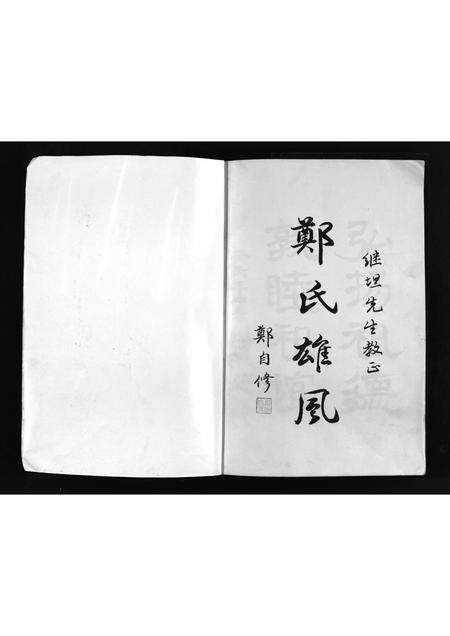 继坦先生教正
鄭氏雄风
鄭自修